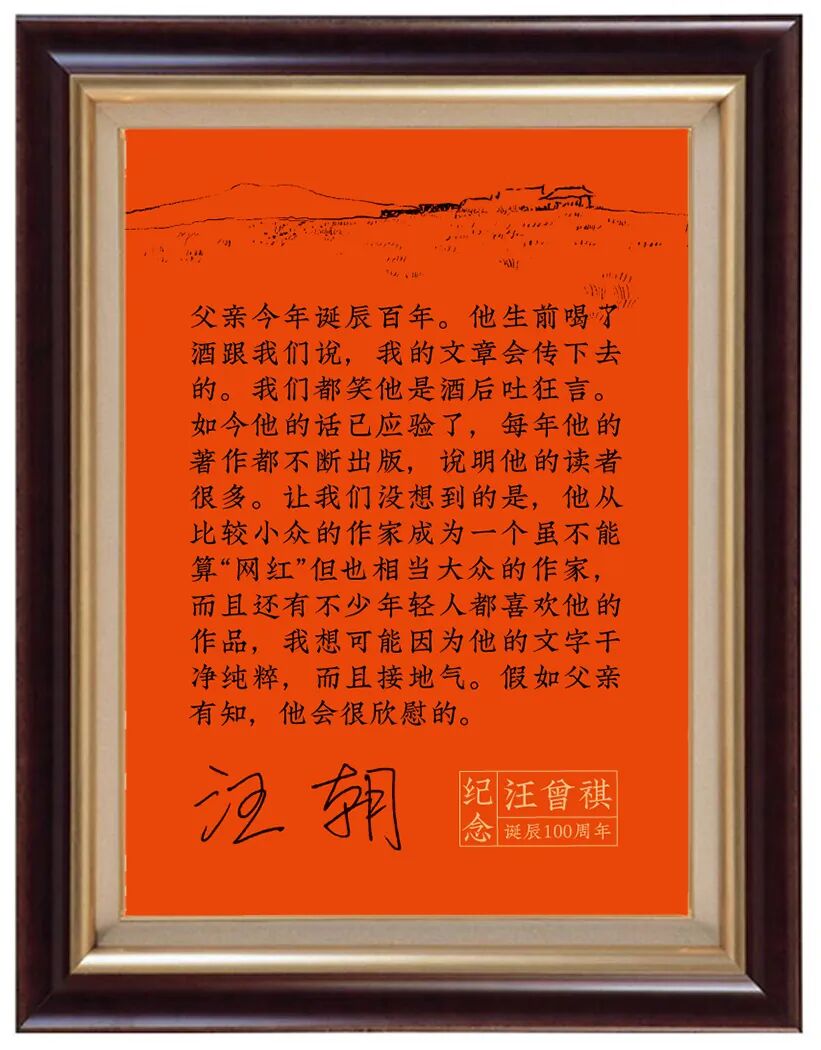 父亲今年诞辰百年。他生前喝了
酒跟我们说，我的文章会传下去
的。我们都笑他是酒后吐狂言。
如今他的话已应验了，每年他的
著作都不断出版，说明他的读者
很多。让我们没想到的是，他从
比较小众的作家成为一个虽不能
算“网红”但也相当大众的作家，
而且还有不少年轻人都喜欢他的
作品，我想可能因为他的文字干
净纯粹，而且接地气。假如父亲
有知，他会很欣慰的。
汪朝
纪念
汪曾祺
诞辰100周年